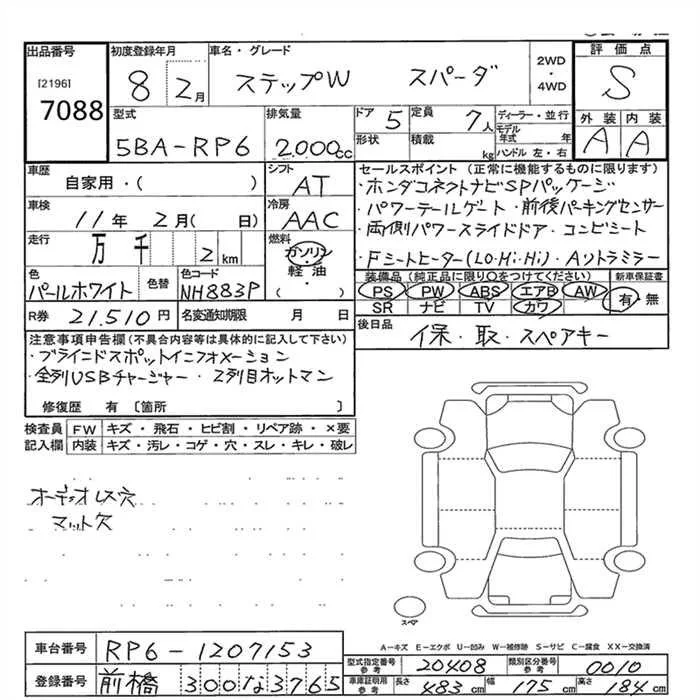 出品番号 初度登録年月 車名・グレード 2WD・4WD 評価点
[2196]
7088
8 2月 ステップW スパーダ S
型式 排気量 ドア 5 定員 7人 ディーラー・並行 外装 内装
5BA-RP6 2000cc 形状 積載 kg モデル年式 年 ハンドル 左・右 A A
車歴 シフト セールスポイント (正常に機能するものに限ります)
自家用・( ) AT ・ホンダコネクトナビSPパッケージ
車検 冷房 ・パワーテールゲート・前後パーキングセンサー
11年 2月( 日) AAC ・両側パワースライドドア・コンビシート
走行 燃料
万 千 2km ガソリン ・Fシートヒーター(LO・Hi:Hi)・Aソトラミラー
軽油
( )
色 色替 色コード 装備品 (純正品に限り○をつけてください) 新車保証書
パールホワイト NH883P PS PW ABS エアB AW 有・無
SR ナビ TV カワ
R券 21,510円 名変通知期限 月 日 後日品
保・取・スペアキー
注意事項申告欄(不具合内容等は具体的に記入して下さい)
・ブラインドスポットインフォメーション
・全列USBチャージャー ・2列目オットマン
修復歴 有 [箇所 ]
検査員 FW キズ・飛石・ヒビ割・リペア跡・×要
記入欄 内装 キズ・汚レ・コゲ・穴・スレ・キレ・破レ
オーディオレス穴
マット欠
スペア
A―キズ E―エクボ U―凹み W―補修跡 S―サビ C―腐食 XX―交換済
車台番号 RP6-1207153
型式指定番号 参考 20408 類別区分番号 参考 0010
登録番号 前橋 300な3765
車庫証明用 参考 長さ 483cm 幅 175cm 高さ 184cm